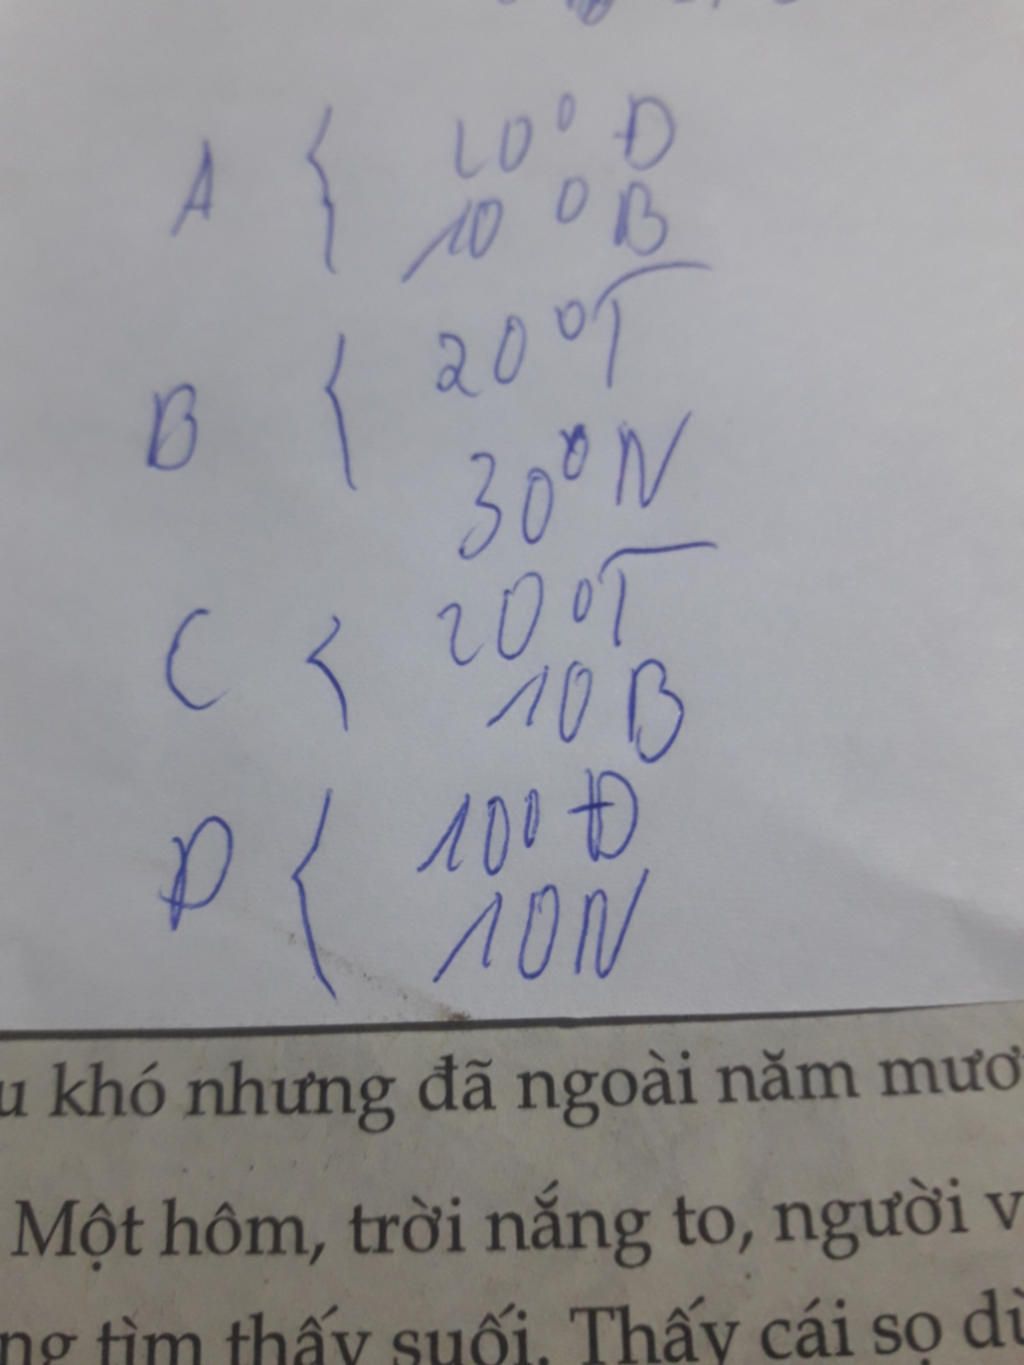 A { 20° Đ
10° B
B { 20° T
30° N
C { 20° T
10 B
D { 10° Đ
10 N
u khó nhưng đã ngoài năm mươ
Một hôm, trời nắng to, người v
ng tìm thấy suối. Thấy cái sọ dừ